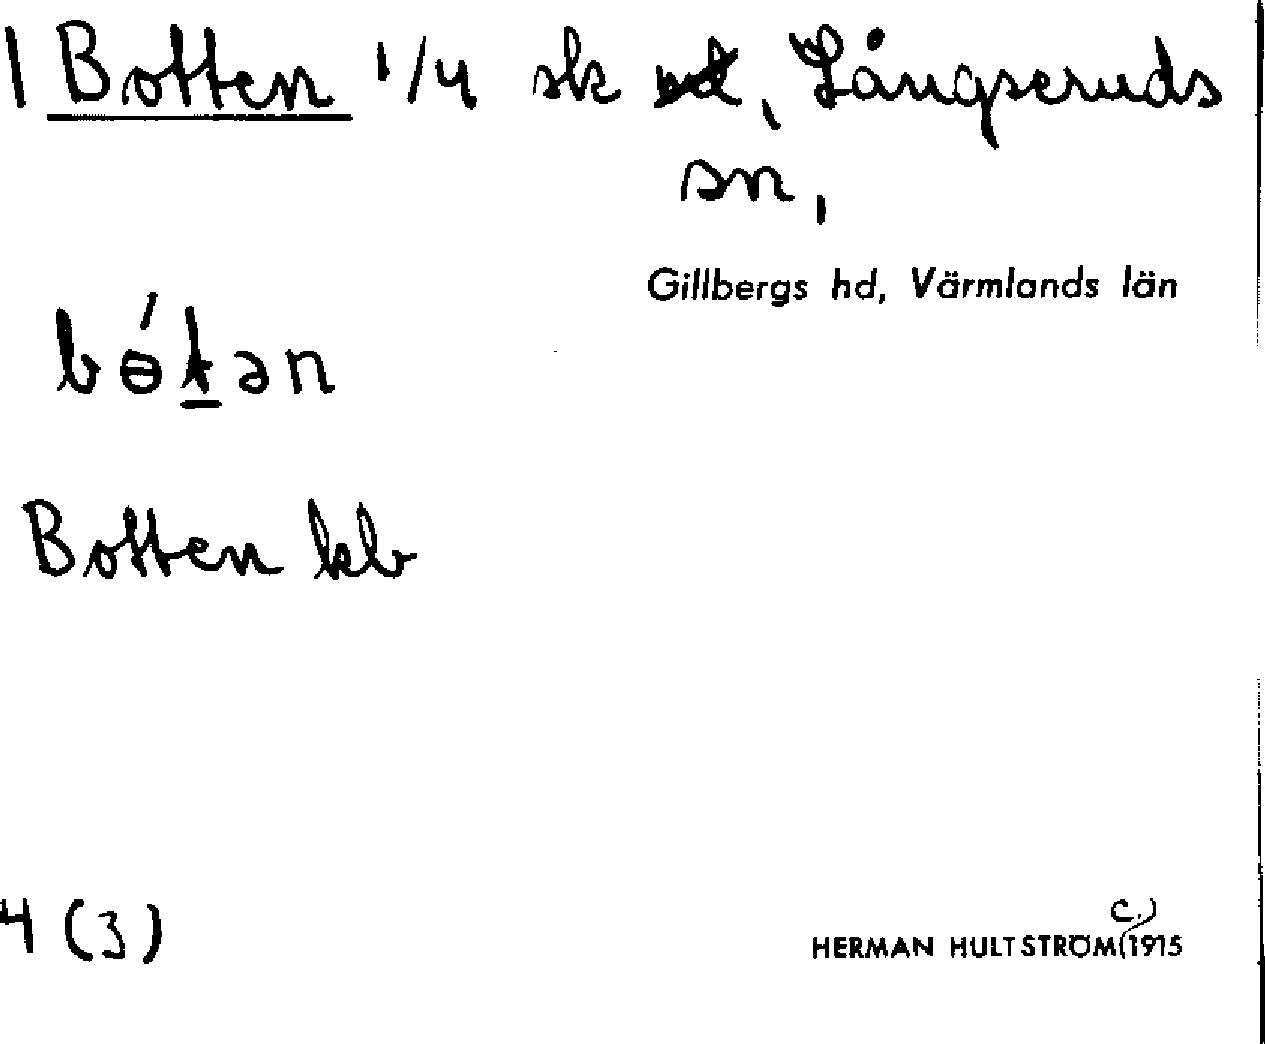 1 Botten 1/4 sk, Långseruds
sn,
Gillbergs hd, Värmlands län
bɵ́tən
Botten kb
4 (3)
HERMAN HULTSTRÖM (c.) 1915